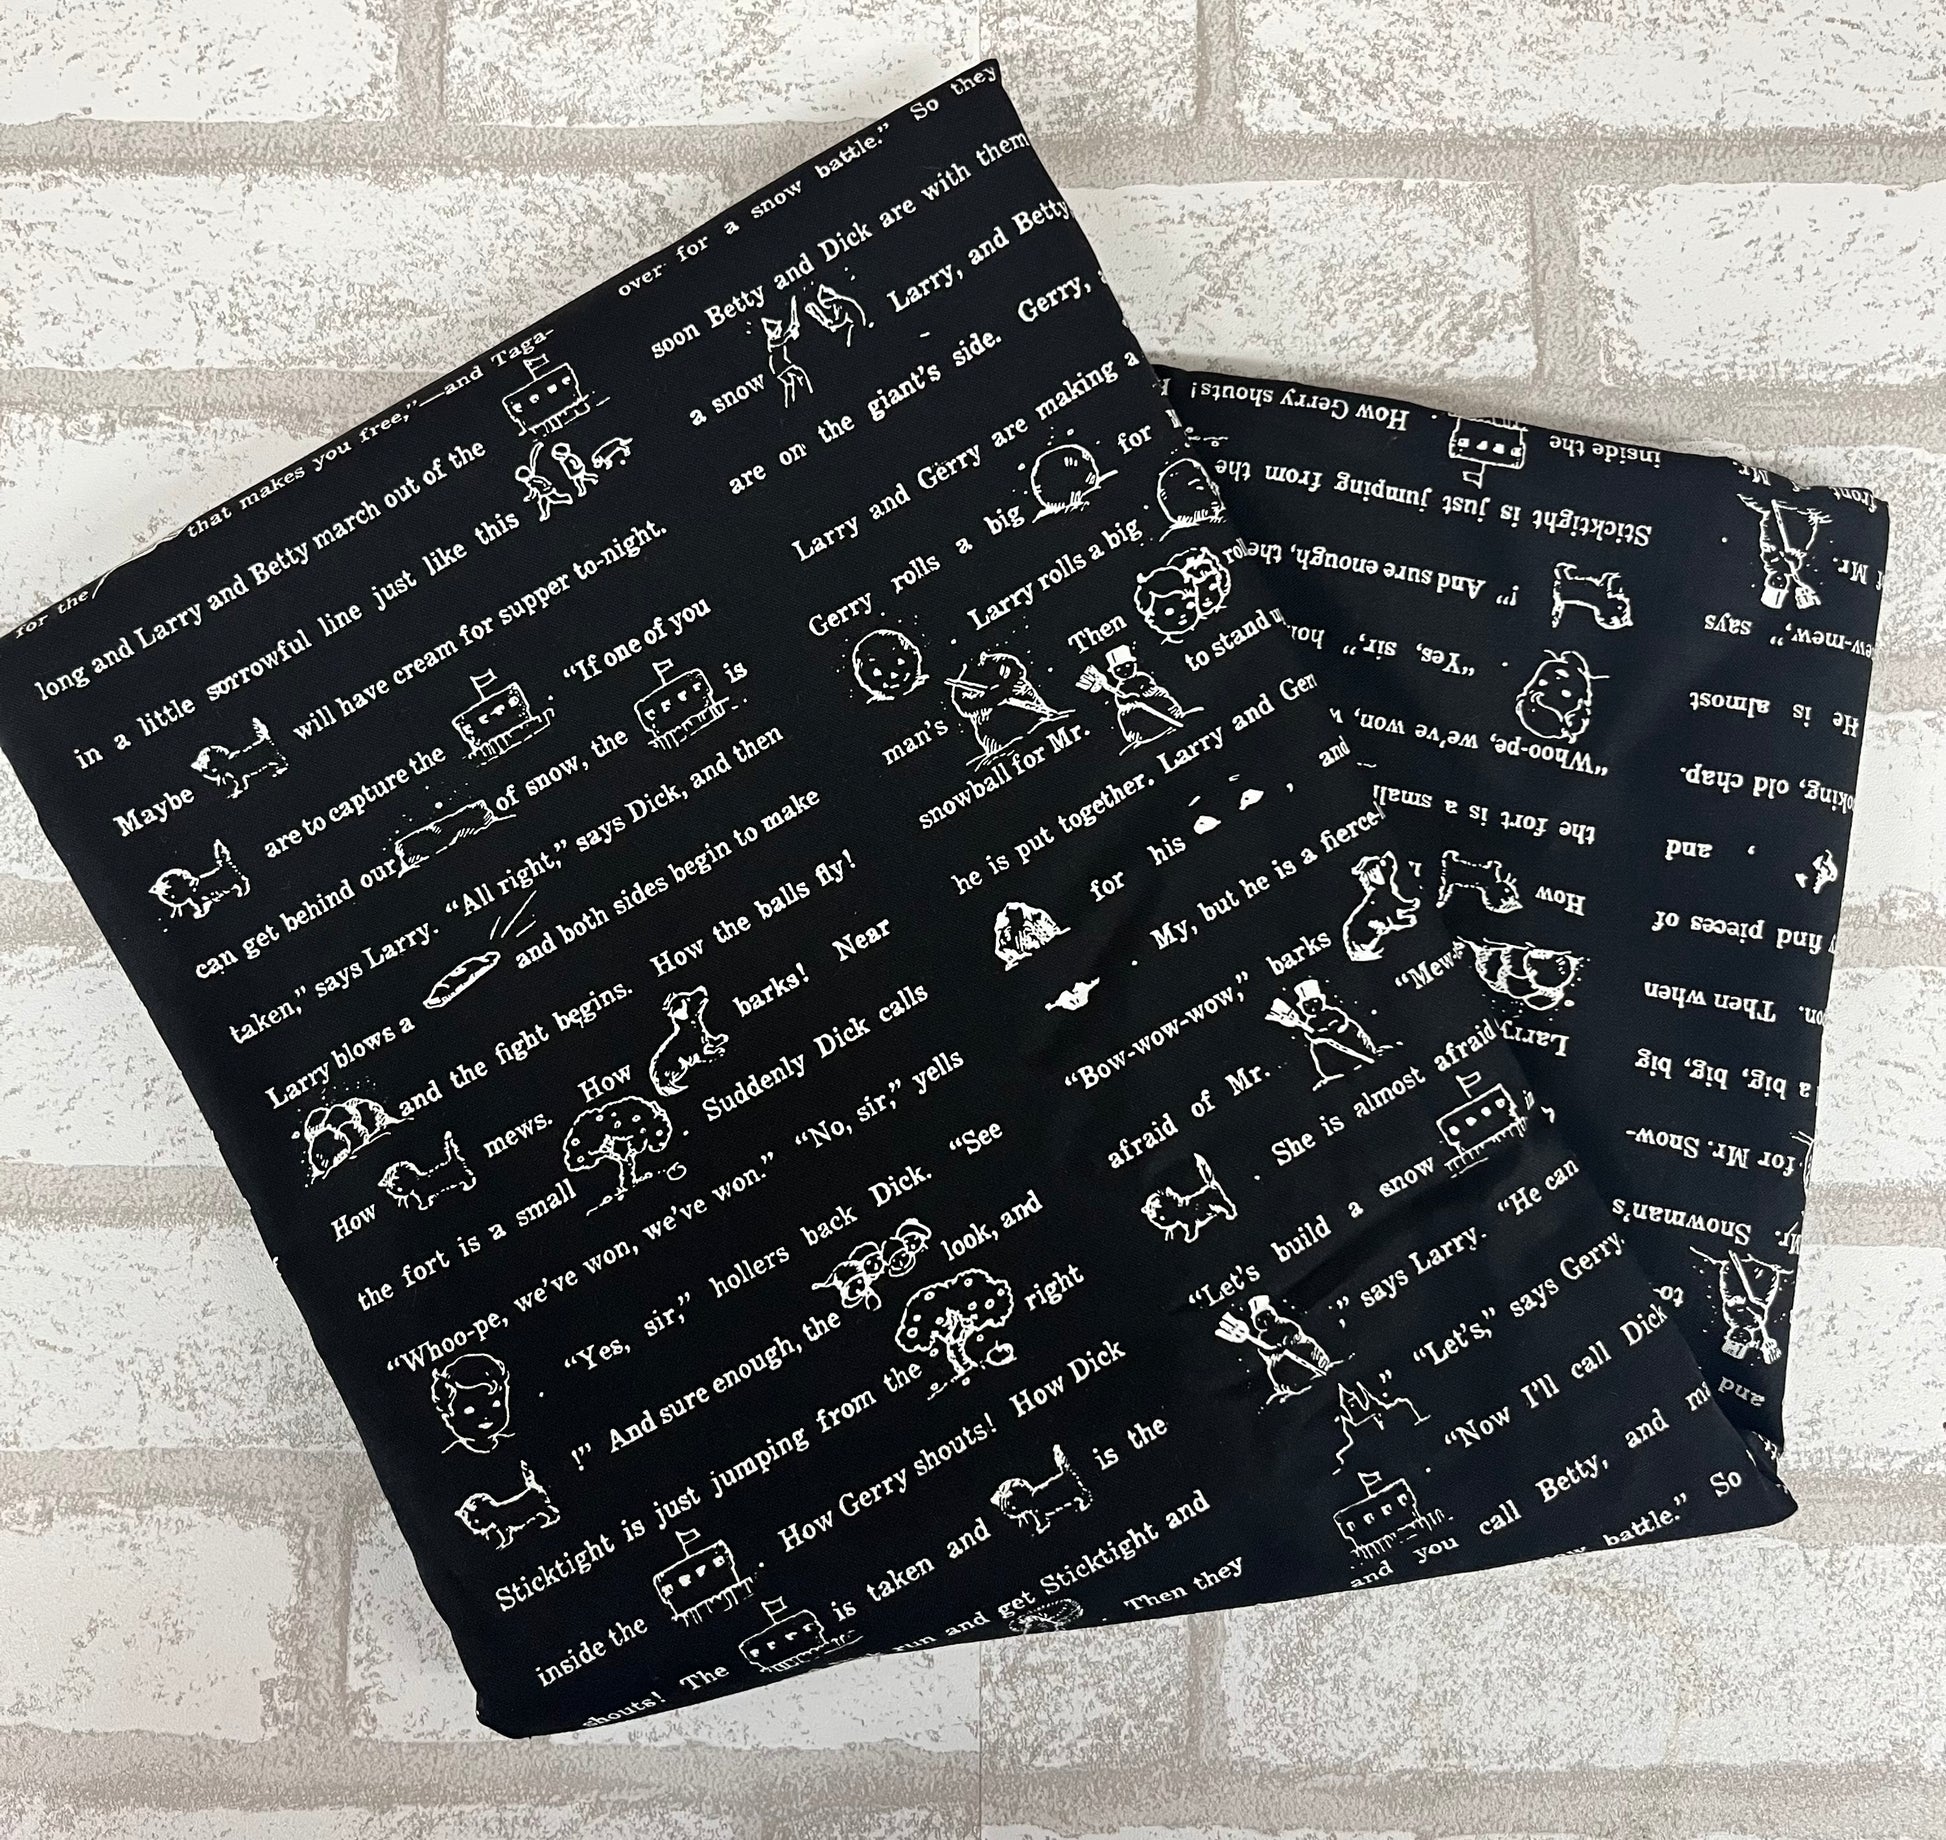 for the that makes you free,"—and Taga-
long and Larry and Betty march out of the
in a little sorrowful line just like this
Maybe will have cream for supper to-night.
are to capture the . "If one of you
can get behind our of snow, the is
taken," says Larry. "All right," says Dick, and then
Larry blows a and both sides begin to make
and the fight begins. How the balls fly!
How mews. How barks! Near
the fort is a small . Suddenly Dick calls
"Whoo-pe, we've won, we've won." "No, sir," yells
. "Yes, sir," hollers back Dick. "See
!" And sure enough, the look, and
Sticktight is just jumping from the right
inside the . How Gerry shouts! How Dick
shouts! The is taken and is the
run and get Sticktight and
. Then they
over for a snow battle." So they
soon Betty and Dick are with them
a snow . Larry, and Betty
are on the giant's side. Gerry,
Larry and Gerry are making a
Gerry rolls a big for
. Larry rolls a big
man's . Then
snowball for Mr. to stand
he is put together. Larry and
for his , and
. My, but he is a fierce
"Bow-wow-wow," barks
afraid of Mr. . "Mew
. She is almost afraid
"Let's build a snow
," says Larry. "He can
." "Let's," says Gerry.
. "Now I'll call Dick
and you call Betty, and
battle." So
How Gerry shouts!
inside the
Sticktight is just jumping from the
!" And sure enough, the
. "Yes, sir,"
"Whoo-pe, we've won,
the fort is a small
How
Larry
front of Mr.
. Mr.
says
He is almost
old chap.
, and
find pieces of
Then when
a big, big, big
for Mr. Snow-
Snowman's
to
and